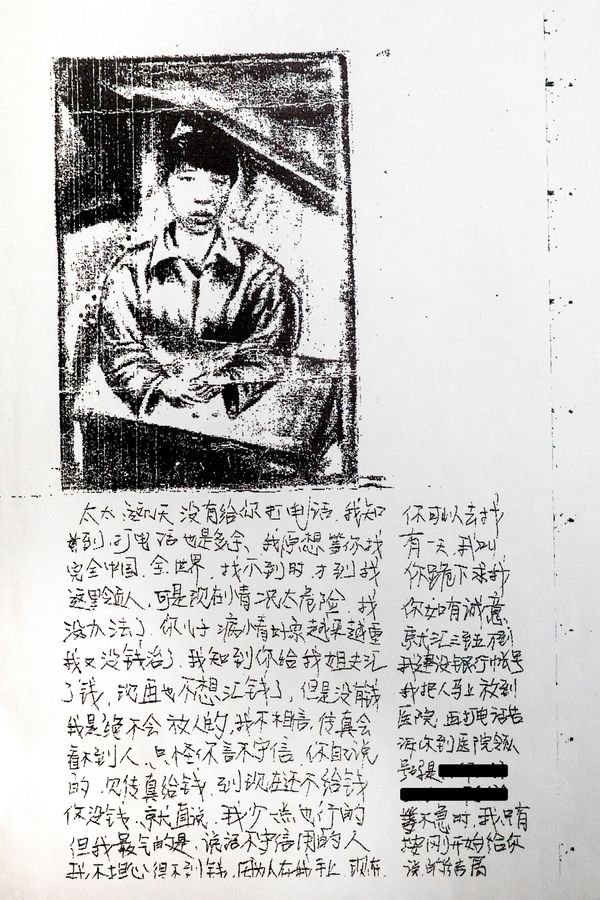 太太.这几天 没有给你打电话.我知
到.打电话也是多余、我原想等你找
完全中国.全世界，找不到时.才到我
这里领人.可是现在情况太危险.我
没办法了.你儿子病情好象越来越重
我又没钱治了.我知到你给我姐夫汇
了钱，次再也不想汇钱了，但是没有钱
我是绝不会放人的，我不相信，传真会
看不到人.只怪你言不守信.你自己说
的.见传真给钱，到现在还不给钱
你没钱.就直说.我少一点也行的
但我最气的是，说话不守信用的人
我不担心得不到钱，因为人在我手上.现在
你可以去找
有一天，我叫
你跪下求我
你如有诚意
就汇三五不到
我建设银行帐号
我把人马上放到
医院.再打电话告
诉你到医院领人
号码是
等不急时，我只有
按 开始给你
说的